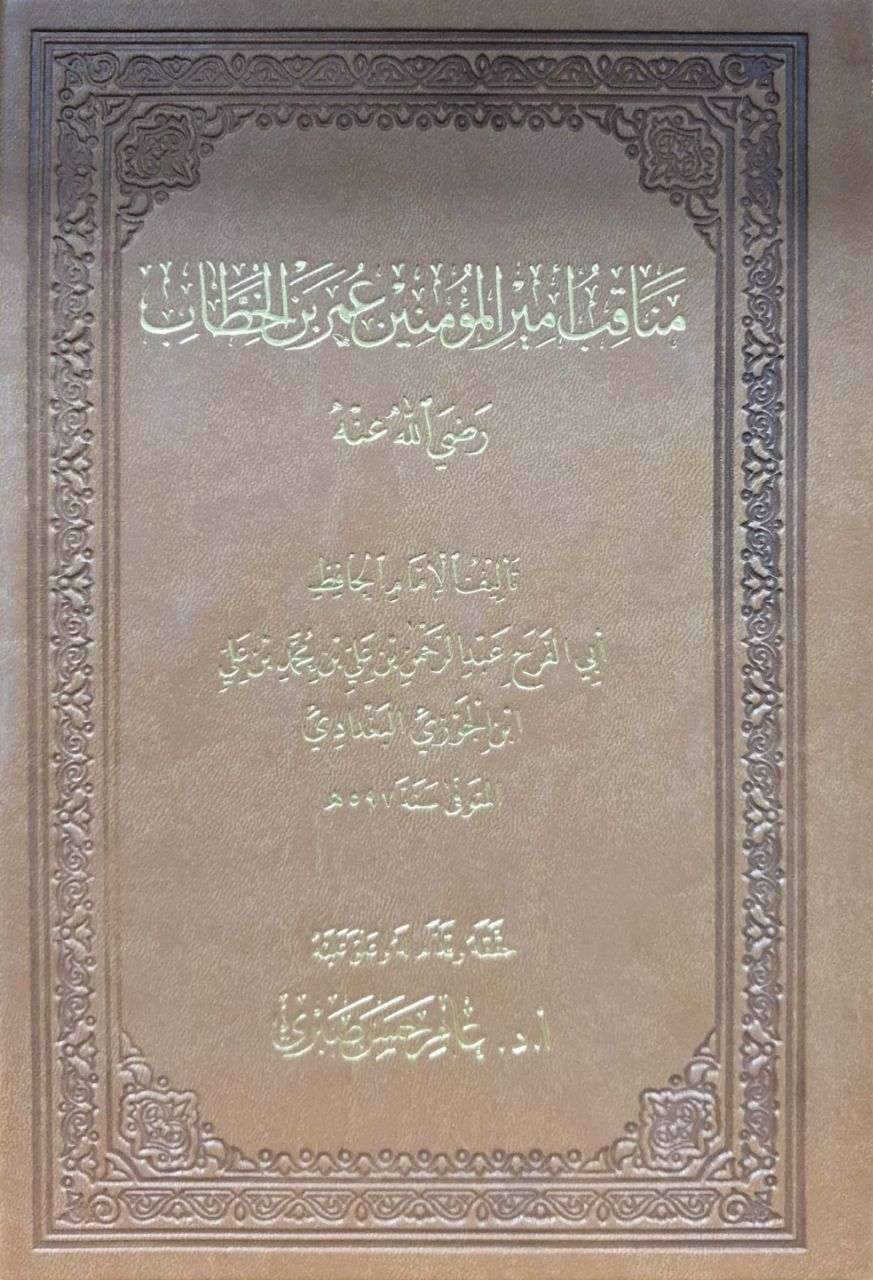 مَنَاقِبُ أَمِيرِ المُؤْمِنِين عُمَر بَنِ الخَطَّابِ
رَضِيَ اللهُ عَنْهُ
تَأْلِيْفُ الإِمَامِ الحَافِظِ
أَبِي الفَرَجِ عَبْدِ الرَّحْمَنِ بْنِ عَلِيِّ بْنِ مُحَمَّدِ بْنِ عَلِيٍّ
ابْنِ الجَوْزِيِّ البَغْدَادِيِّ
المُتَوَفَّى سَنَةَ ٥٩٧ هـ
حَقَّقَهُ وَقَدَّمَ لَهُ وَعَلَّقَ عَلَيْهِ
أ.د. عَامِر حَسَن صَبْرِي